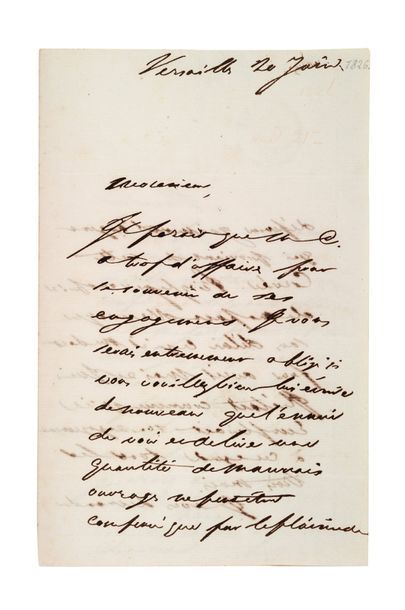 Versailles 20 Juin 1826.
Monsieur,
Je pense que M. C.
a trop d'affaires pour
se souvenir de ses
engagemens. Je vous
serai extremement obligé si
vous vouillez bien lui écrire
de nouveau que l'ennui
de voir et de lire une
quantité de mauvais
ouvrages ne peut etre
compensé que par le plaisir de